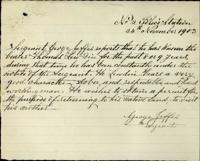 Police Station
24th November 1903
Sergeant George Jeffes reports that he has known the
bearer Thomas Low Sin for the past 9 years
during that time he has been constantly under the
notice of the Sergeant. He Low Sin bears a very
good character, sober and respectable and hard
working man. He wishes to obtain a permit for
the purpose of returning to his native land to visit
his mother
George Jeffes
Sergeant